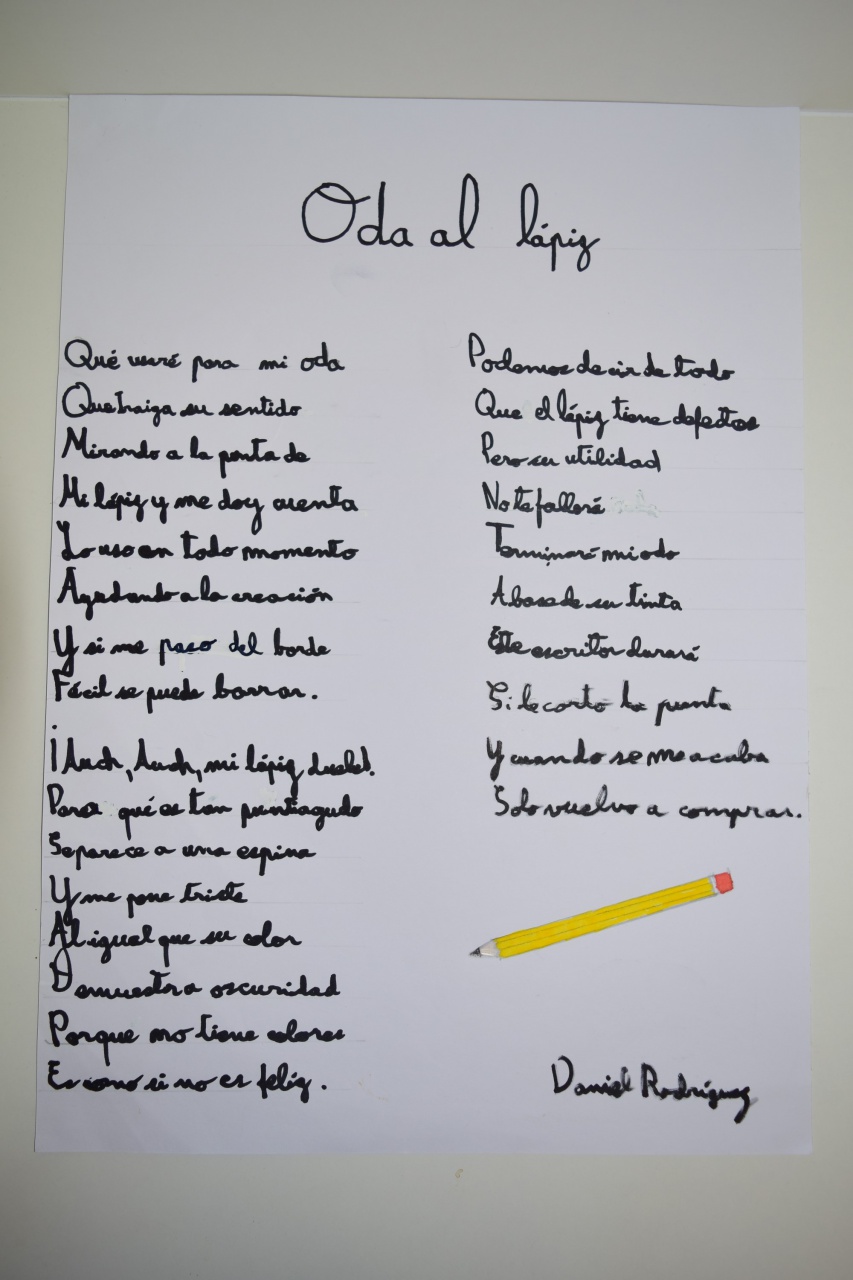 Oda al lápiz
Qué usaré para mi oda
Que traiga su sentido
Mirando a la punta de
Mi lápiz y me doy cuenta
Lo uso en todo momento
Ayudando a la creación
Y si me paso del borde
Fácil se puede borrar.
¡Auch, Auch, mi lápiz duele!.
Para qué es tan puntiagudo
Se parece a una espina
Y me pone triste
Al igual que su color
Demuestra oscuridad
Porque no tiene colores
Es como si no es felíz.
Podemos decir de todo
Que el lápiz tiene defectos
Pero su utilidad
No te fallará
Terminaré mi oda
A base de su tinta
Este escritor durará
Si le corto la punta
Y cuando se me acaba
Solo vuelvo a comprar.
Daniel Rodríguez